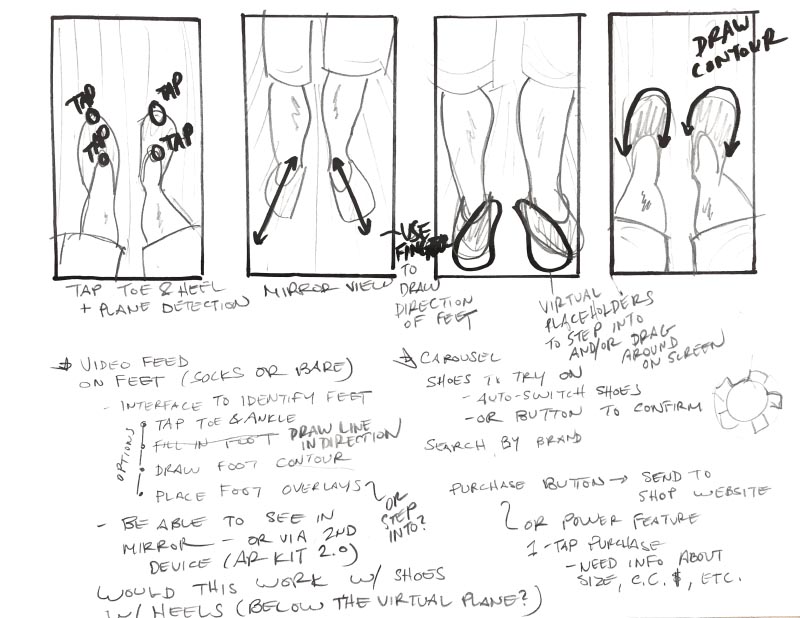 TAP
TAP
TAP
TAP
DRAW
CONTOUR
TAP TOE & HEEL
+ PLANE DETECTION
MIRROR VIEW
- USE
FINGER
TO
DRAW
DIRECTION
OF FEET
VIRTUAL
PLACEHOLDERS
TO STEP INTO
AND/OR DRAG
AROUND
ON SCREEN
VIDEO FEED
ON FEET (SOCKS OR BARE)
- INTERFACE TO IDENTIFY FEET
OPTIONS
TAP TOE & ANKLE
FILL IN FOOT DRAW LINE
IN DIRECTION
DRAW FOOT CONTOUR
PLACE FOOT OVERLAYS
OR
STEP
INTO?
- BE ABLE TO SEE IN
MIRROR - OR VIA 2ND
DEVICE (AR KIT 2.0)
WOULD THIS WORK W/ SHOES
W/ HEELS (BELOW THE VIRTUAL PLANE?)
CAROUSEL
SHOES TO TRY ON
- AUTO-SWITCH SHOES
- OR BUTTON TO CONFIRM
SEARCH BY BRAND
PURCHASE BUTTON → SEND TO
SHOP WEBSITE
OR POWER FEATURE
1-TAP PURCHASE
- NEED INFO ABOUT
SIZE, C.C. $, ETC.